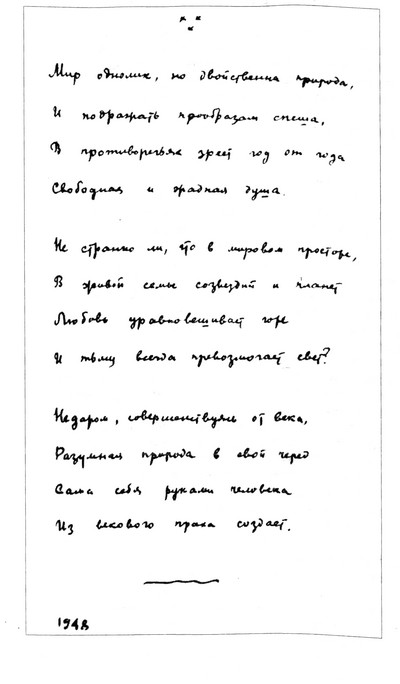 * * *
Мир однолик, но двойственна природа,
И подражать прообразам спеша,
В противоречьях зреет год от года
Свободная и жадная душа.
Не странно ли, что в мировом просторе,
В живой семье созвездий и планет
Любовь уравновешивает горе
И тьму всегда превозмогает свет?
Недаром, совершенствуясь от века,
Разумная природа в свой черед
Сама себя руками человека
Из векового праха создает.
1948